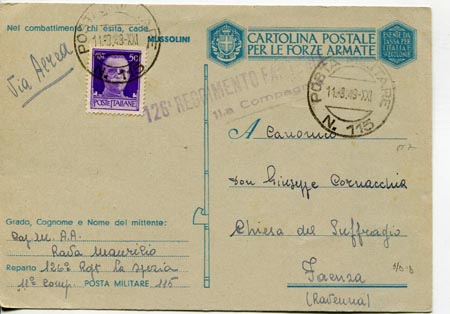 Nel combattimento chi esita, cade
MUSSOLINI
Via Aerea
POSTA MILITARE
11.8.43-XXI
N. 115
50
POSTE ITALIANE
126° REGGIMENTO
11.a Compagnia
CARTOLINA POSTALE
PER LE FORZE ARMATE
ESENTE DA
TASSA PER
L'ITALIA E
POSTA MILITARE
11.8.43-XXI
N. 115
A Canonico
Don Giuseppe Cornacchia
Chiesa del Suffragio
Faenza
(Ravenna)
Grado, Cognome e Nome del mittente:
Cap. M. A.A.
Rava Maurilio
Reparto 126° Rgt la Spezia
11ª Comp. POSTA MILITARE 115